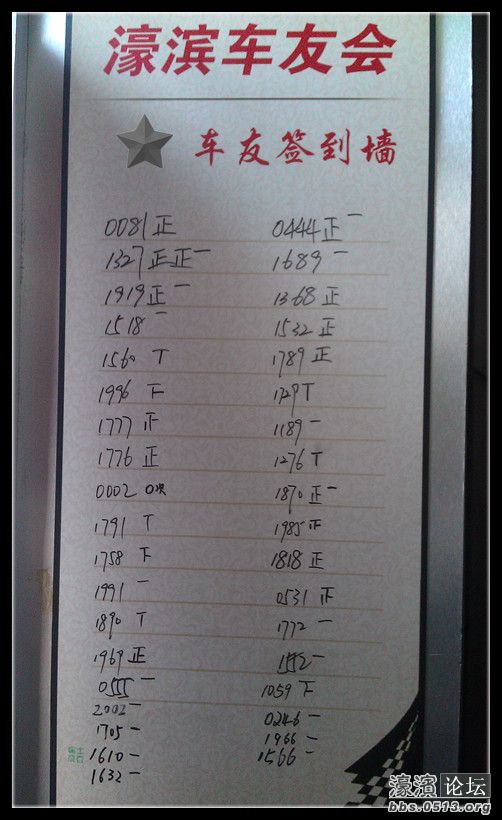 濠滨车友会
车友签到墙
0081 正 0444 正一
1327 正正一 1689 一
1919 正一 1368 正
1518 一 1532 正
1560 T 1789 正
1996 下 1729 T
1777 正 1189 一
1776 正 1276 T
0002 0次 1870 正一
1791 T 1985 正
1758 下 1818 正
1991 一 0531 正
1890 T 1772 一
1969 正 1552 一
0555 一 1059 下
2002 一 0246 一
1705 一 1966 一
1610 一 1566 一
1632 一
濠滨论坛
bbs.0513.org